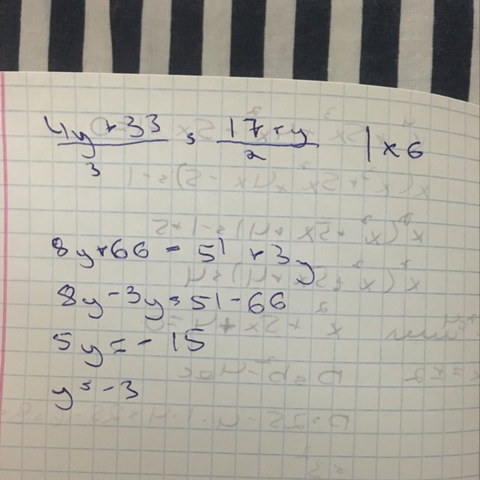 4y+33/3 = 17+y/2 | x6
8y+66 = 51 +3y
8y-3y=51-66
5y=-15
y=-3